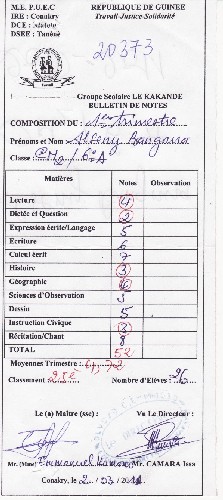 M.E. P.U.E.C REPUBLIQUE DE GUINEE
IRE : Conakry Travail-Justice-Solidarité
DCE : Matoto
DSEE : Tanènè
20373
Groupe Scolaire LE KAKANDE
BULLETIN DE NOTES
COMPOSITION DE : 1er trimestre
Prénoms et Nom : Bangoura
Classe : 6e A
Matières Notes Observation
Lecture 4
Dictée et Question 2
Expression écrite/Langage 5
Ecriture 6
Calcul écrit 7
Histoire 3
Géographie
Sciences d'Observation 5
Dessin 5
Instruction Civique 3
Récitation/Chant 8
TOTAL 52
Moyennes Trimestre : 4,72
Classement 25è Nombre d'Elèves : 26
Le (a) Maître (sse) : Vu Le Directeur :
Mr. (Mme) Emmanuel Mr. CAMARA Issa
Conakry, le 2 /03 /20